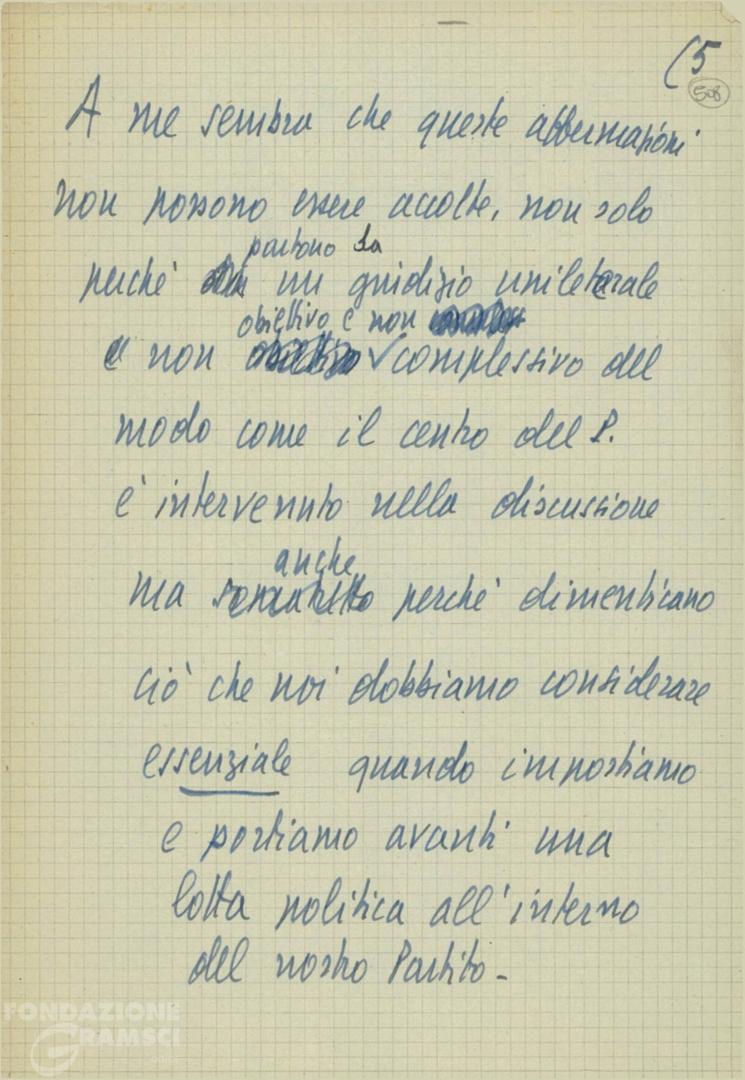 (5
508
A me sembra che queste affermazioni
non possono essere accolte, non solo
partono da
perché un giudizio unilaterale
obiettivo e non
e non complessivo del
modo come il centro del P.
è intervenuto nella discussione
anche
ma soprattutto perché dimenticano
ciò che noi dobbiamo considerare
essenziale quando impostiamo
e portiamo avanti una
lotta politica all'interno
del nostro Partito -
FONDAZIONE
GRAMSCI